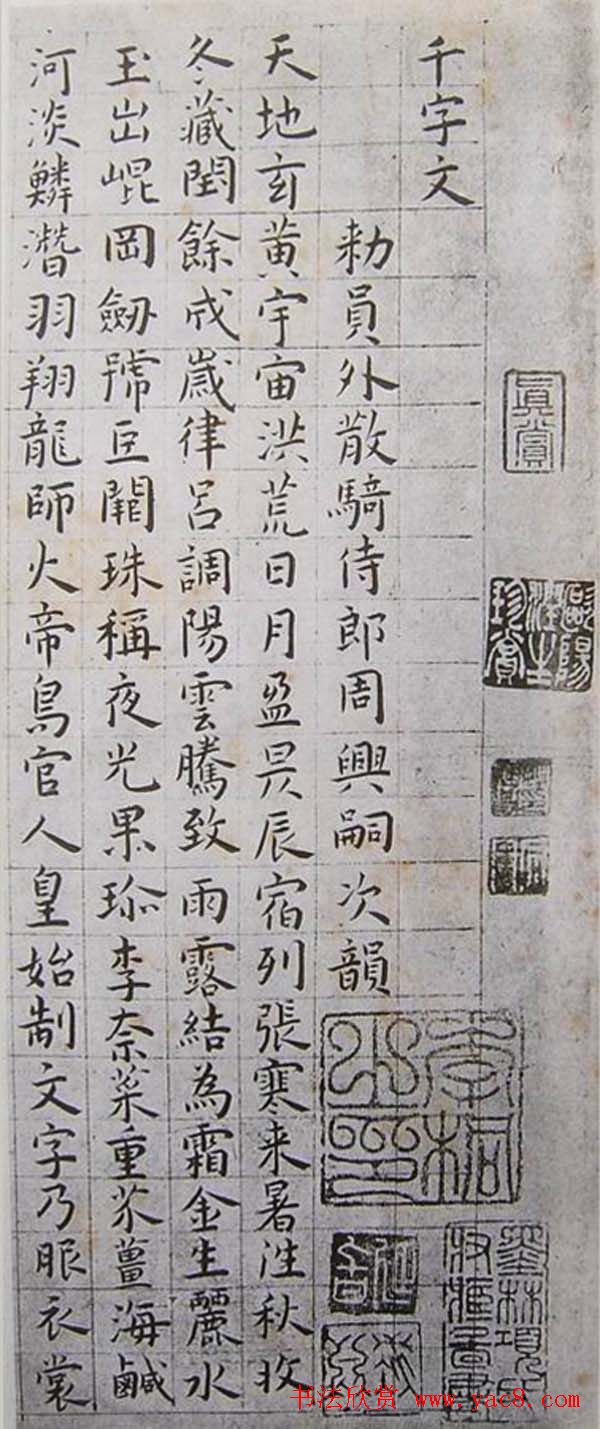 眞賞
千字文
勑員外散騎侍郎周興嗣次韻
天地玄黃宇宙洪荒日月盈昃辰宿列張寒来暑往秋收
冬藏閏餘成歲律呂調陽雲騰致雨露結為霜金生麗水
玉出崐岡劒號巨闕珠稱夜光果珎李柰菜重芥薑海鹹
河淡鱗潛羽翔龍師火帝鳥官人皇始制文字乃服衣裳
书法欣赏 www.yac8.com